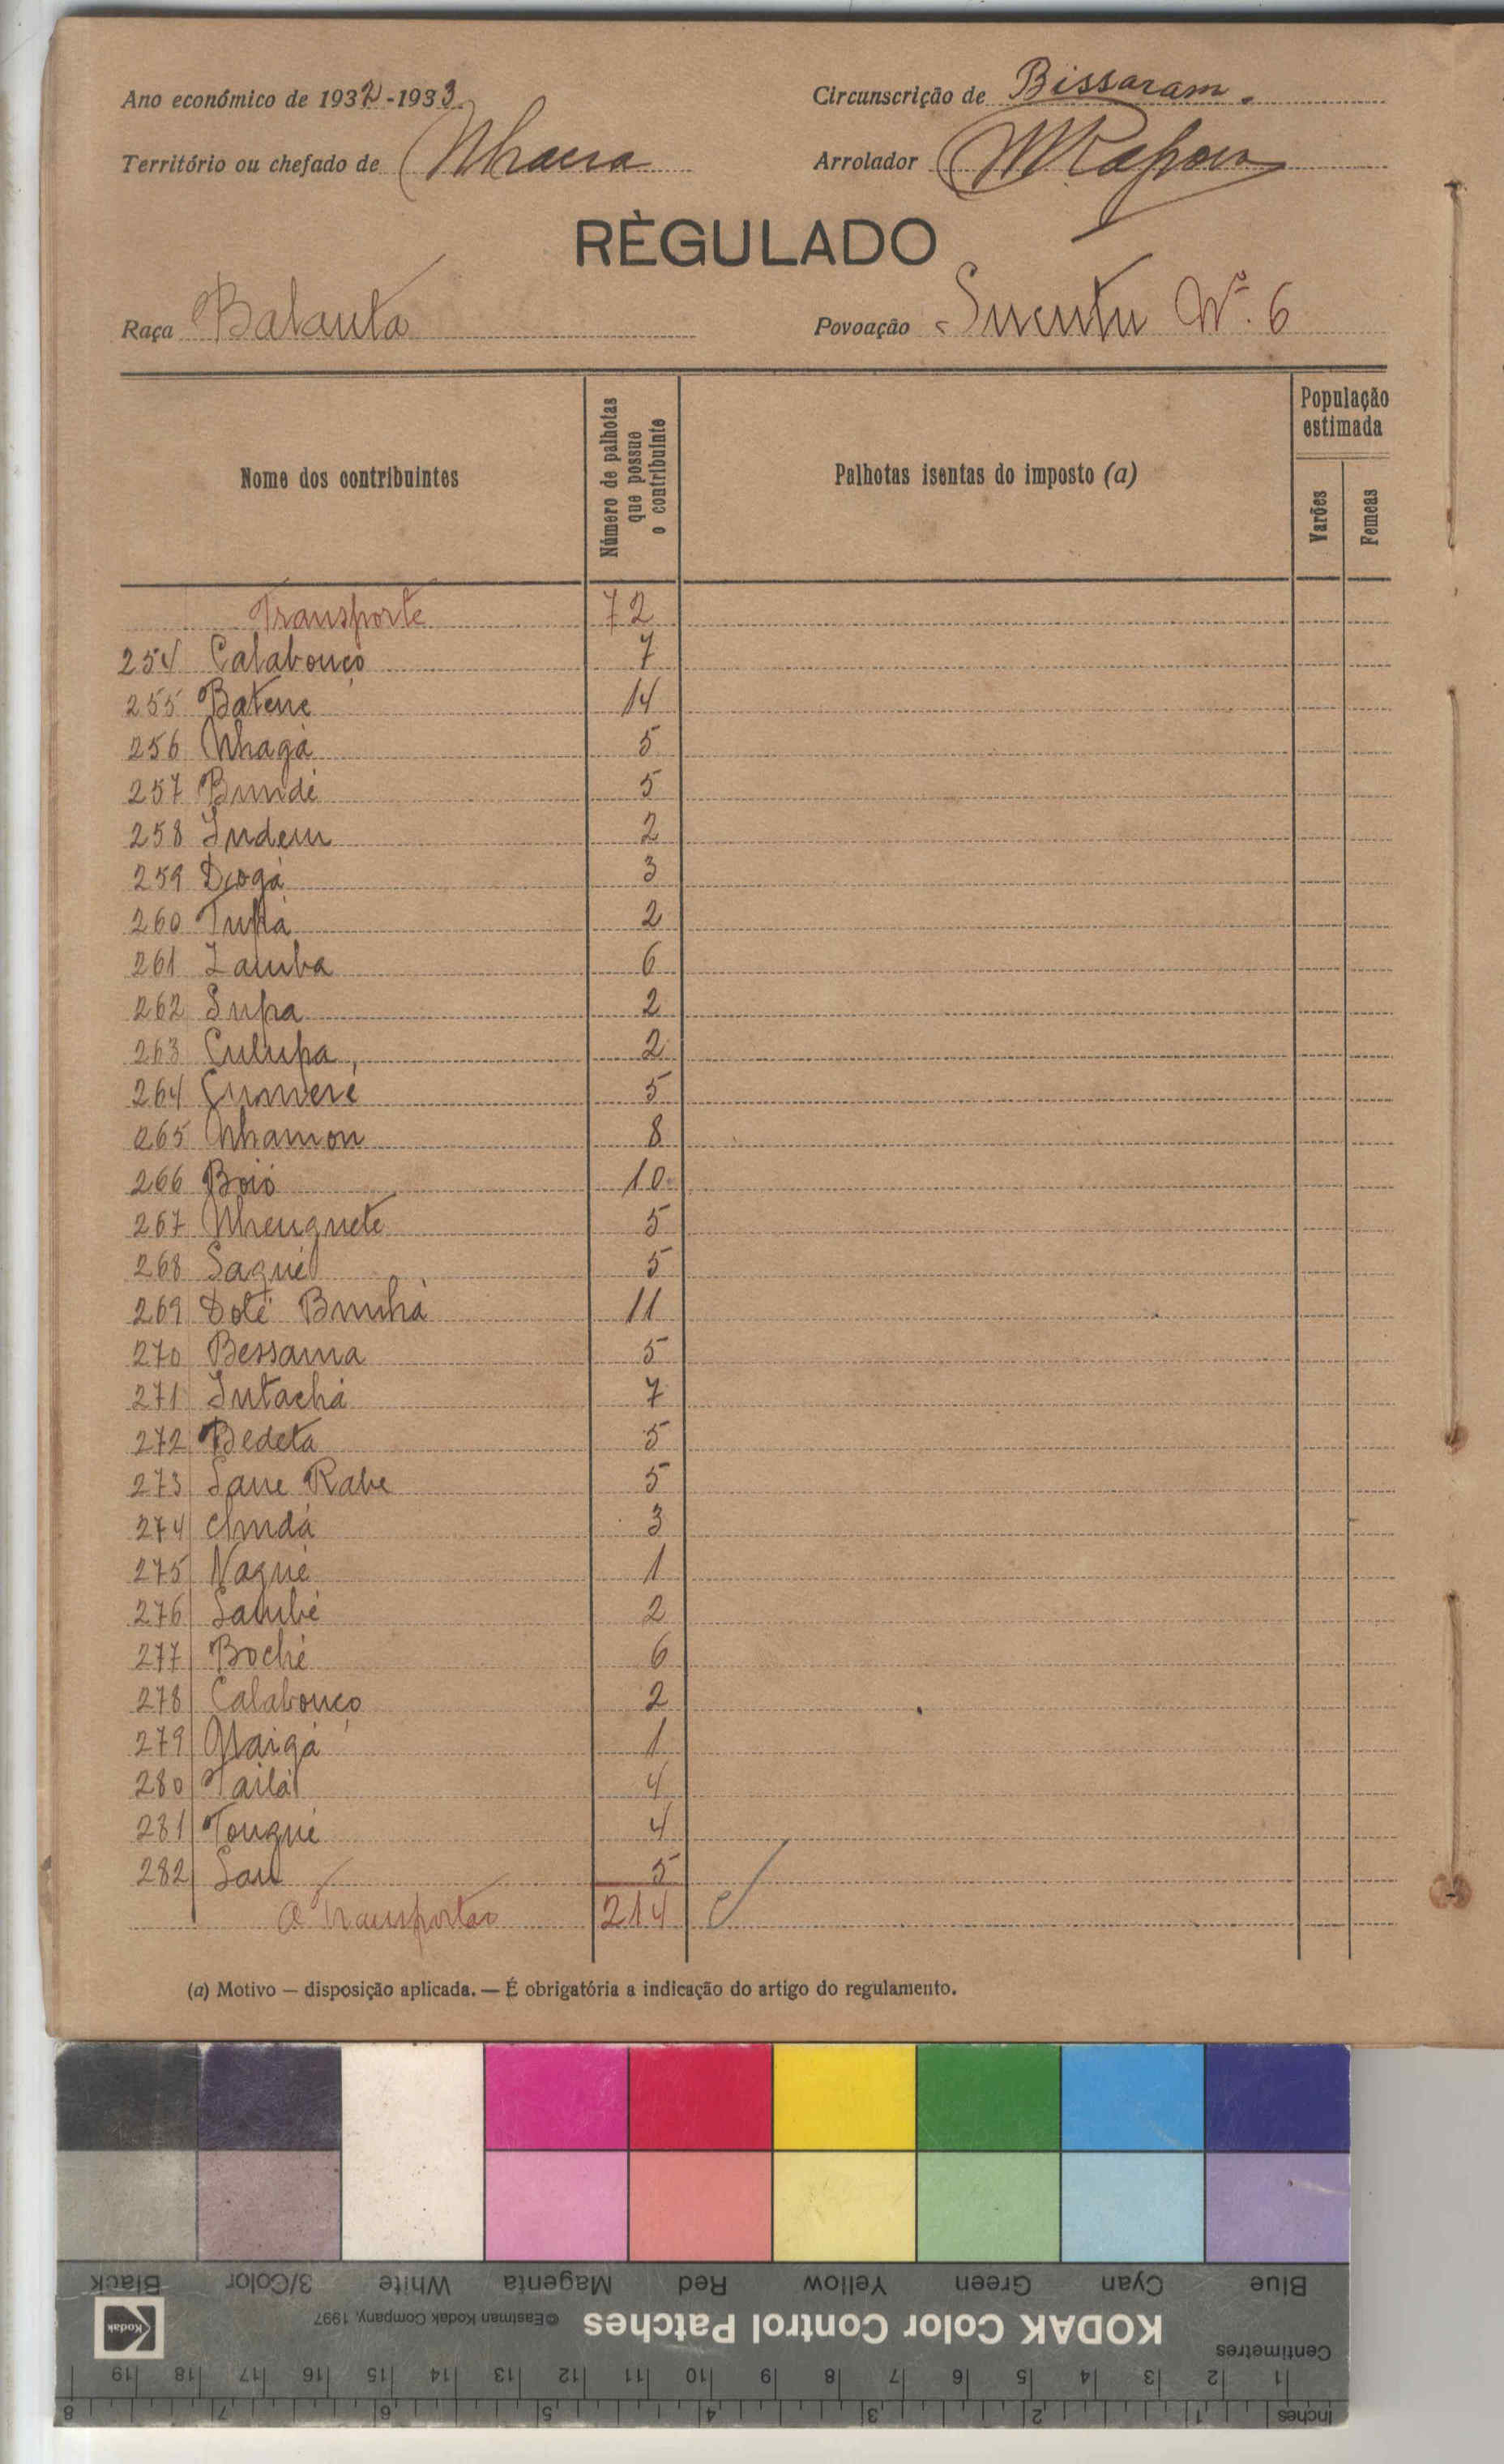 Ano económico de 1932-1933.
Circunscrição de Bissaram.
Território ou chefado de Nhacra
Arrolador
RÈGULADO
Raça Balanta
Povoação Sucutu Nº 6
Nome dos contribuintes
Número de palhotas que possue o contribuinte
Palhotas isentas do imposto (a)
População estimada
Varões
Femeas
Transporte 72
254 Calabouço 7
255 Batene 14
256 Nhagá 5
257 Bundé 5
258 Indem 2
259 Djogá 3
260 Tupá 2
261 Zamba 6
262 Supa 2
263 Culupa, 2
264 Cumeré 5
265 Nhamon 8
266 Boió 10
267 Nhenguete 5
268 Sagué 5
269 Dolé Bunhá 11
270 Bessama 5
271 Intachá 7
272 Bedeta 5
273 Sane Rabe 5
274 Clundá 3
275 Naqué 1
276 Sambé 2
277 Boché 6
278 Calabouço 2
279 Naigá 1
280 Tailá 4
281 Tongué 4
282 San 5
A Transportar 214
(a) Motivo — disposição aplicada. — É obrigatória a indicação do artigo do regulamento.
Black 3/Color White Magenta Red Yellow Green Cyan Blue
KODAK Color Control Patches ©Eastman Kodak Company, 1997
Kodak
Centimetres
19 18 17 16 15 14 13 12 11 10 9 8 7 6 5 4 3 2 1
8 7 6 5 4 3 2 1 Inches